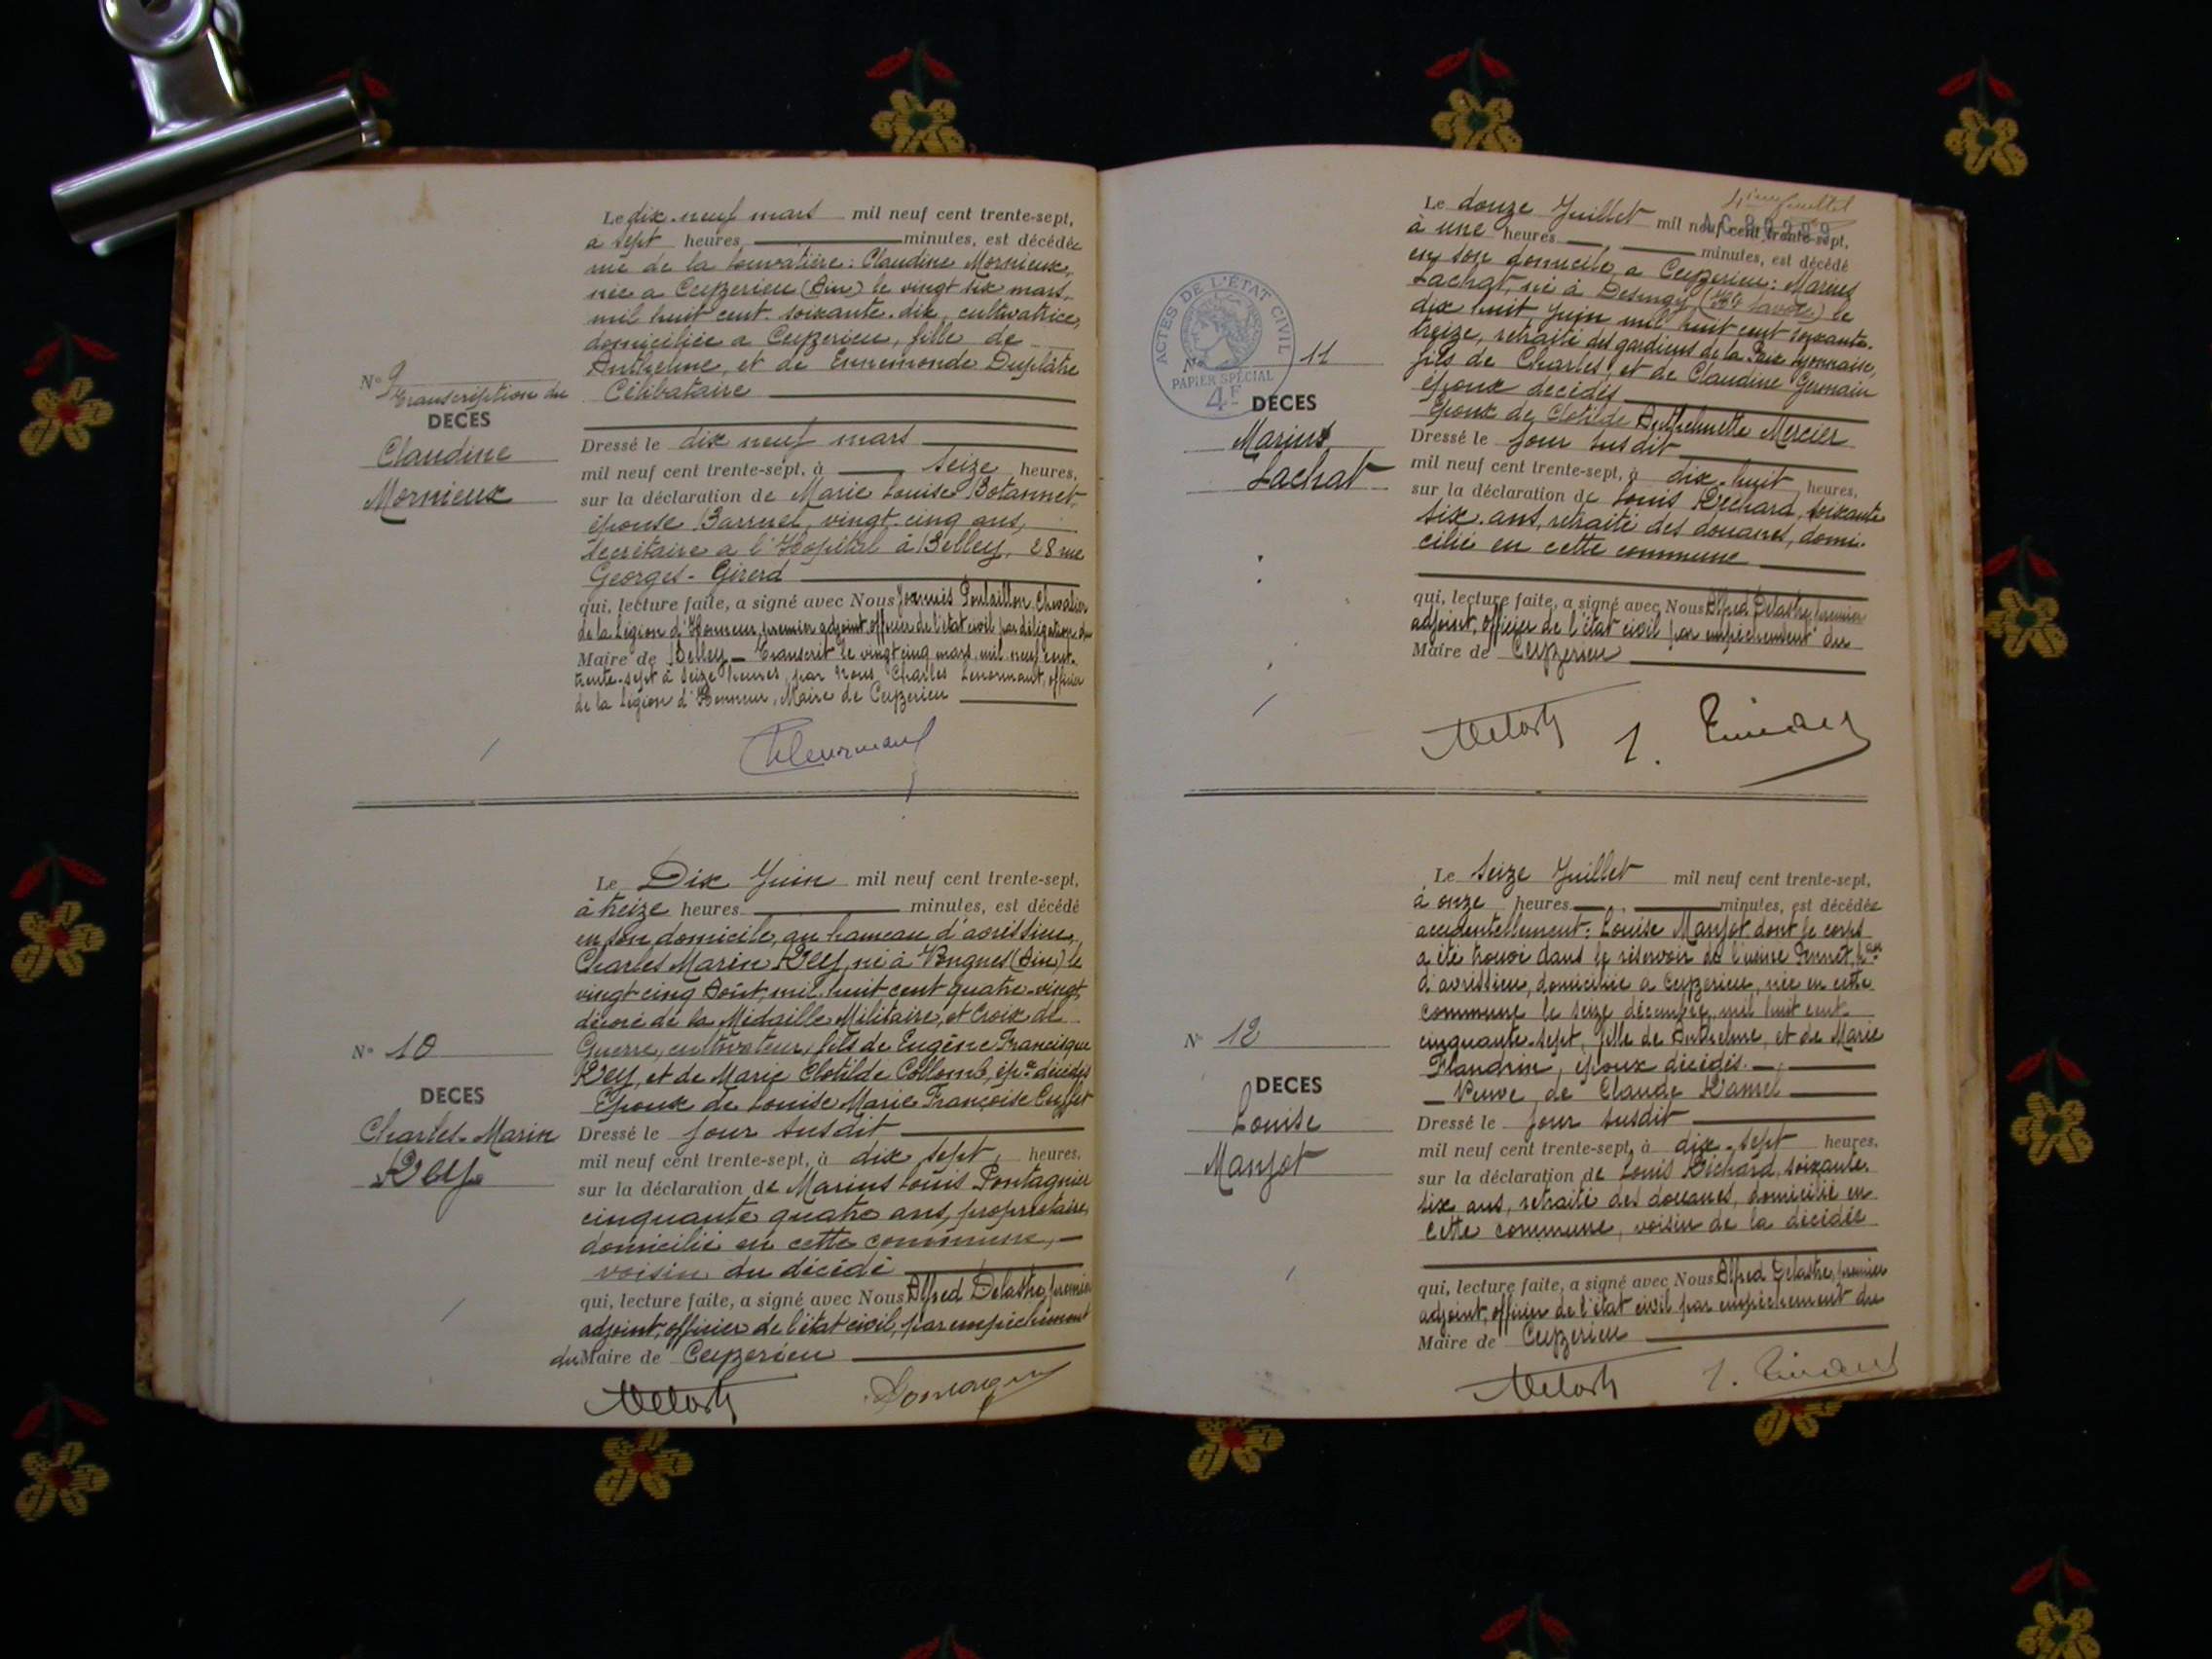 Le dix-neuf mars mil neuf cent trente-sept,
à sept heures minutes, est décédée
rue de la Louvatière : Claudine Mornieux,
née a Ceyzerieu (Ain) le vingt six mars,
mil huit cent soixante-dix, cultivatrice,
domiciliée a Ceyzerieu, fille de
Anthelme, et de Ennemonde Duplâtre
Célibataire
N° 9
Transcription du
DECES
Claudine
Mornieux
Dressé le dix neuf mars
mil neuf cent trente-sept, à seize heures,
sur la déclaration de Marie Louise Botannet
épouse Barruel, vingt-cinq ans,
Secrétaire a l'Hopital à Belley, 28 rue
Georges-Girerd
qui, lecture faite, a signé avec Nous Joannis Poulaillon, Chevalier
de la Légion d'Honneur, premier adjoint, officier de l'état civil par délégation du
Maire de Belley - Transcrit le vingt cinq mars, mil neuf cent
trente-sept à seize heures, par Nous, Charles Lenormant, officier
de la Légion d'Honneur, Maire de Ceyzerieu
Le Dix Juin mil neuf cent trente-sept,
à treize heures minutes, est décédé
en son domicile, au hameau d'avrissieu,
Charles Marin Rey, né à Vongnes (Ain) le
vingt cinq Août, mil huit cent quatre-vingt
décoré de la Médaille Militaire, et Croix de
Guerre, cultivateur, fils de Eugène Francisque
Rey, et de Marie Clotilde Collomb, ép.x décédés
Epoux de Louise Marie Françoise Cuffet
N° 10
DECES
Charles-Marin
Rey
Dressé le jour susdit
mil neuf cent trente-sept, à dix sept, heures,
sur la déclaration de Marius Louis Pontagnier
cinquante quatre ans, propriétaire,
domicilié en cette commune, -
voisin du décédé
qui, lecture faite, a signé avec Nous Alfred Delastre, premier
adjoint, officier de l'état civil, par empêchement
du Maire de Ceyzerieu
4ème feuillet
Le douze Juillet mil neuf cent trente-sept,
à une heures minutes, est décédé
en son domicile, a Ceyzerieu : Marius
Lachat, né à Desingy (Hte Savoie) le
dix huit Juin mil huit cent soixante-
treize, retraité des gardiens de la Paix lyonnaise,
fils de Charles, et de Claudine Germain
époux décédés
Epoux de Clotilde Anthelmette Mercier
ACTES DE L'ÉTAT CIVIL
PAPIER SPÉCIAL
4F
N° 11
DECES
Marius
Lachat
Dressé le jour susdit
mil neuf cent trente-sept, à dix-huit heures,
sur la déclaration de Louis Richard, soixante
six ans, retraité des douanes, domi-
cilié en cette commune
qui, lecture faite, a signé avec Nous Alfred Delastre, premier
adjoint, officier de l'état civil par empêchement du
Maire de Ceyzerieu
Le Seize Juillet mil neuf cent trente-sept,
à onze heures minutes, est décédée
accidentellement : Louise Manjot dont le corps
a été trouvé dans le réservoir de l'usine Pennet,
d'avrissieu, domiciliée a Ceyzerieu, née en cette
commune le seize décembre mil huit cent
cinquante-sept, fille de Anthelme, et de Marie
Flandrin, époux décédés. -
- Veuve de Claude Ramel
N° 12
DECES
Louise
Manjot
Dressé le jour susdit
mil neuf cent trente-sept, à dix-sept heures,
sur la déclaration de Louis Richard, soixante.
six ans, retraité des douanes, domicilié en
cette commune, voisin de la décédée
qui, lecture faite, a signé avec Nous Alfred Delastre, premier
adjoint, officier de l'état civil par empêchement du
Maire de Ceyzerieu